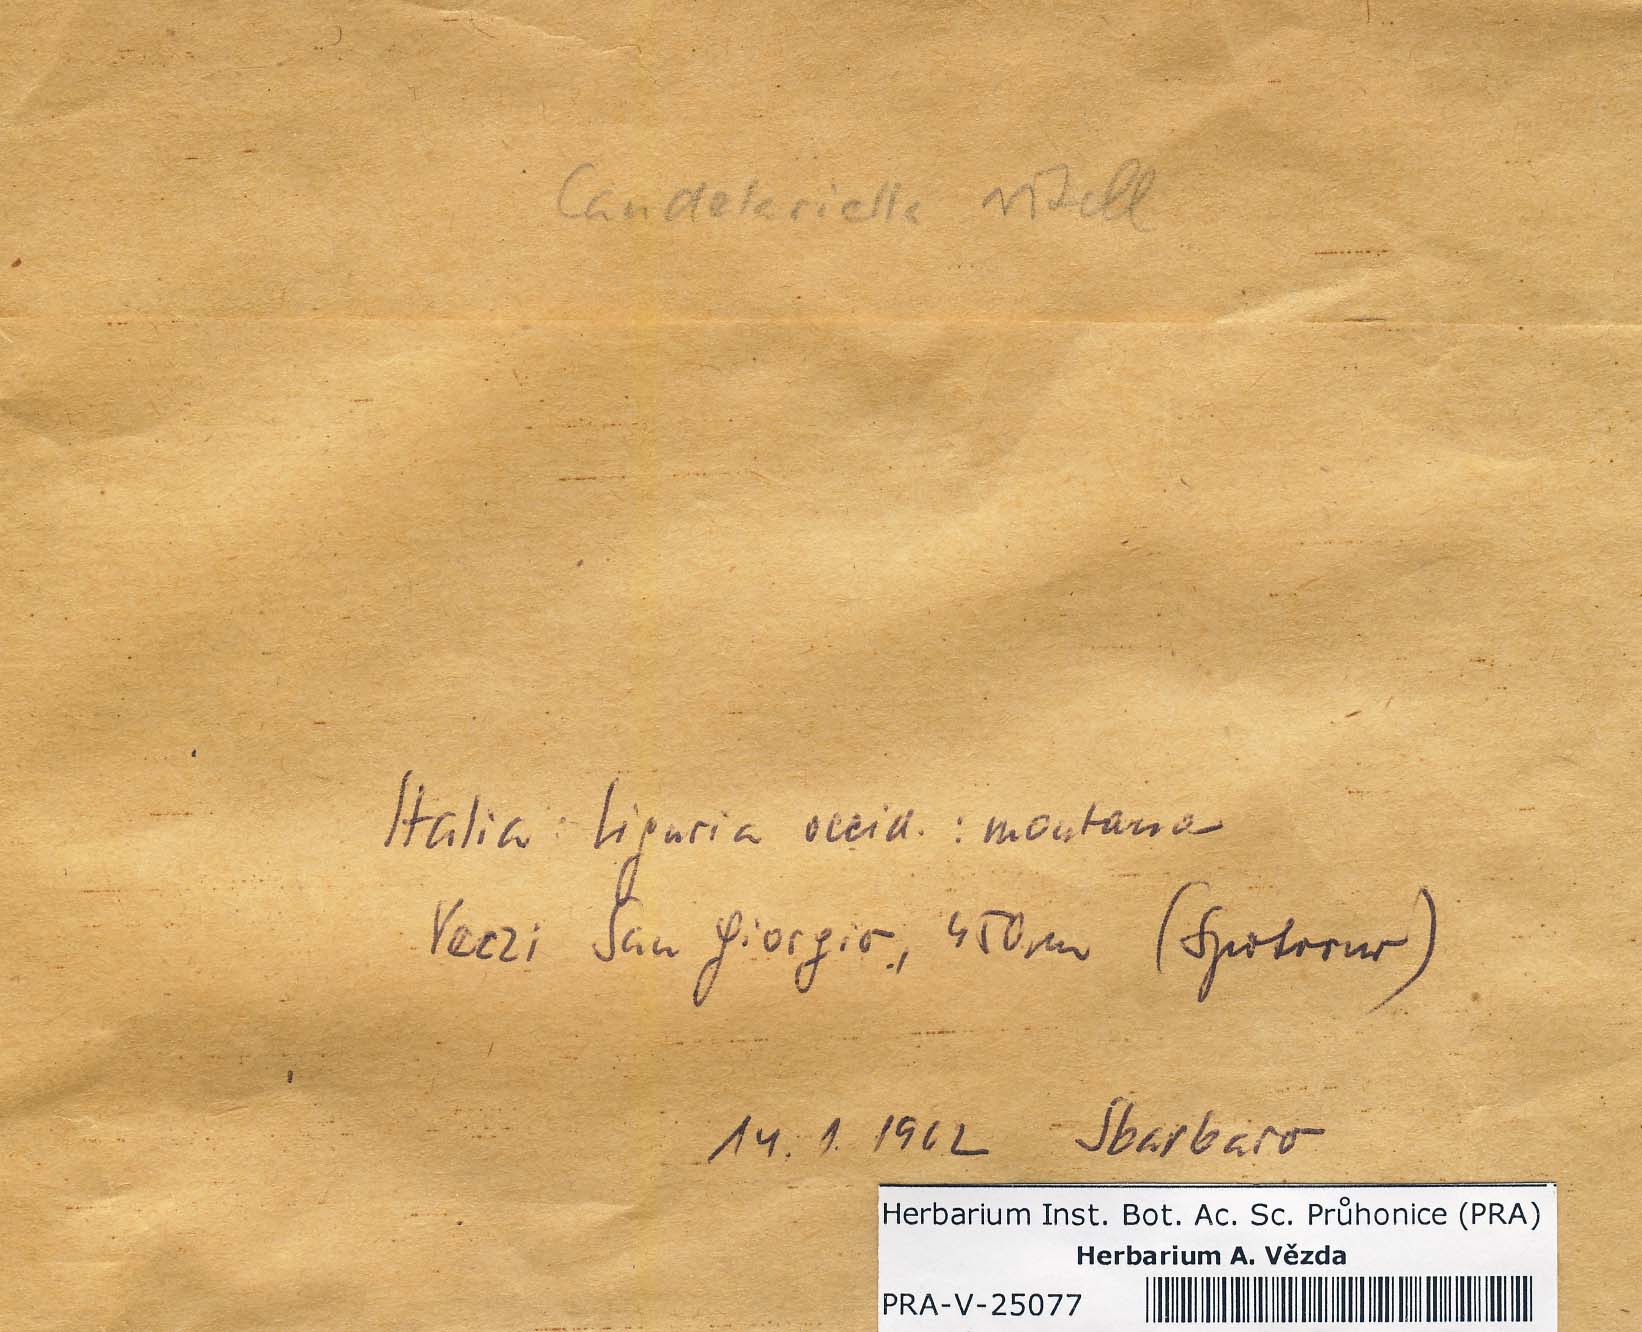 Candelariella vitell
Italia: Liguria occid.: montana
Vezzi San Giorgio, 450m (Spotorno)
14. 1. 1962 Sbarbaro
Herbarium Inst. Bot. Ac. Sc. Průhonice (PRA)
Herbarium A. Vězda
PRA-V-25077